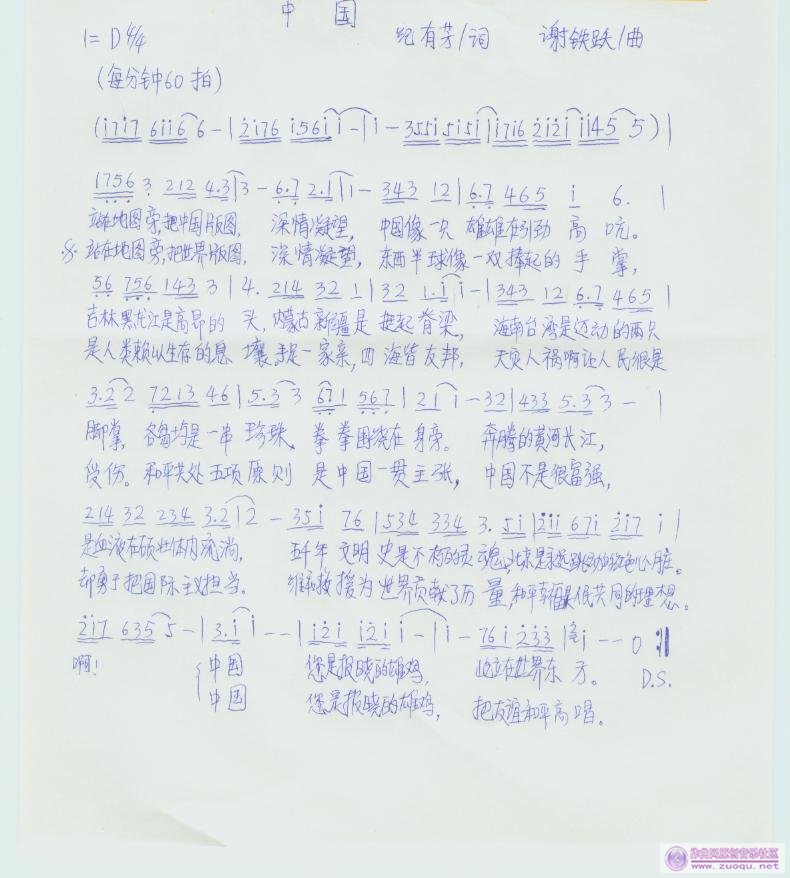 中 国
1= D 4/4 纪有芳/词 谢铁跃/曲
(每分钟60拍)
(i7i7 6ii6 6 - | 2i76 i56i i - | i - 355i 5i5i | i7i6 2i2i i | i45 5 ) |
1756 3 212 4.3 | 3 - 6.7 2.1 | 1 - 343 12 | 6.7 465 i 6. |
站在地图旁,把中国版图, 深情凝望, 中国像一只 雄雄在引劲 高 吭。
站在地图旁,把世界版图, 深情凝望, 东西半球像一双捧起的 手 掌,
56 756 143 3 | 4. 214 32 1 | 32 1.i i - | 343 12 6.7 465 |
吉林黑龙江是高昂的 头, 内蒙古新疆是 挺起 脊梁, 海南台湾是迈动的两只
是人类赖以生存的息 壤 手挽一家亲, 四 海皆友邦, 天灾人祸啊让人民很是
3.2 2 7213 46 | 5.3 3 671 567 | 21 1 - 32 | 433 5.3 3 - |
脚掌, 各岛均是一串 珍珠、 拳拳围绕在 身旁。 奔腾的黄河长江,
受伤。 和平共处五项原则 是中国一贯主张, 中国不是很富强,
214 32 234 3.2 | 2 - 35i 76 | 534 334 3. 5i | 2ii 67i 2i7 i |
是血液在硕壮体内流淌, 五千年 文明 史是不朽的灵 魂,北京是永远跳动的红色心脏。
却勇于把国际主义担当。 维和救援为 世界贡献了力 量,和平幸福是最低共同的理想。
2i7 635 5 - | 3.i i - - | i2i i2i i - | i - 76i 233 | i - - 0 :||
啊! 中国 您是报晓的雄鸡, 屹立在世界东 方。 D.S.
中国 您是报晓的雄鸡, 把友谊和平高唱。
作曲网原创音乐社区
www.zuoqu.net